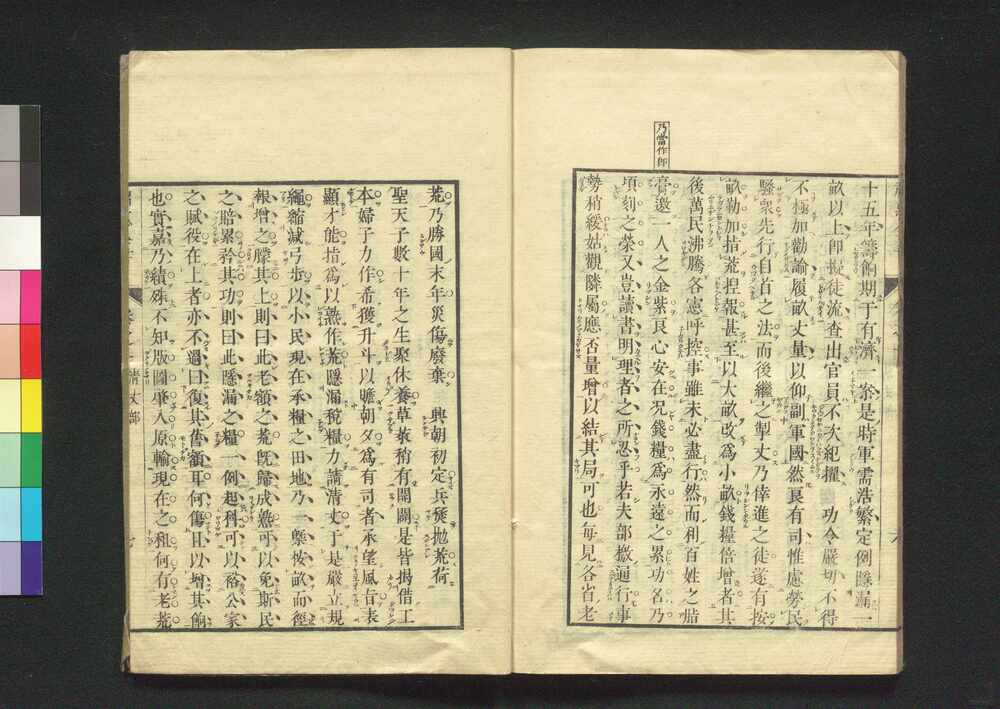 乃當作即
十五年籌餉期于有濟一案是時軍需浩繁定例隱漏一
畝以上即擬徒流查出官員不次超擢功令嚴切不得
不極加勸諭履畝丈量以仰副軍國然良有司惟慮勞民
騷衆先行自首之法而後繼之掣丈乃倖進之徒遂有按
畝勒加指荒捏報甚至以大畝改爲小畝錢糧倍增者其
後萬民沸騰各憲呼控事雖未必盡行然而利百姓之脂
膏邀一人之金紫良心安在况錢糧爲永遠之累功名乃
頃刻之榮又豈讀書明理者之所忍乎若夫部檄逼行事
勢稍緩姑觀隣屬應否量增以結其局可也每見各省老
荒乃勝國末年災傷廢棄 興朝初定兵燹拋荒荷
聖天子數十年之生聚休養草萊稍有開闢是皆揭借工
本婦子力作希獲升斗以贍朝夕爲有司者承望風旨表
顯才能指爲以熟作荒隱漏稅糧力請清丈于是嚴立規
繩縮減弓步以小民現在承糧之田地乃一槩按畝而徑
報增之朦其上則曰此老額之荒旣歸成熟可以免斯民
之賠累矜其功則曰此隱漏之糧一例起科可以裕公家
之賦役在上者亦不過曰復其舊額耳何傷且以增其餉
也實嘉乃績殊不知版圖肇入原輸現在之租何有老荒
清丈部